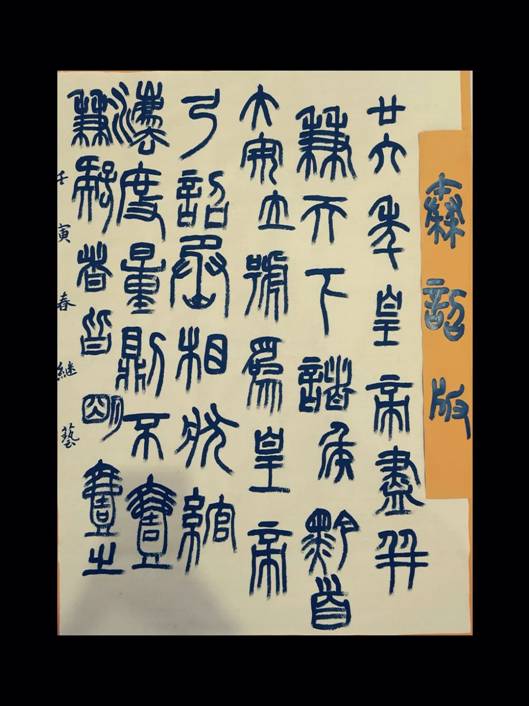 秦詔版
廿六年皇帝盡并
兼天下諸矦黔首
大安立號爲皇帝
乃詔丞相狀綰
灋度量則不壹
歉疑者皆明壹之
壬寅春继藝